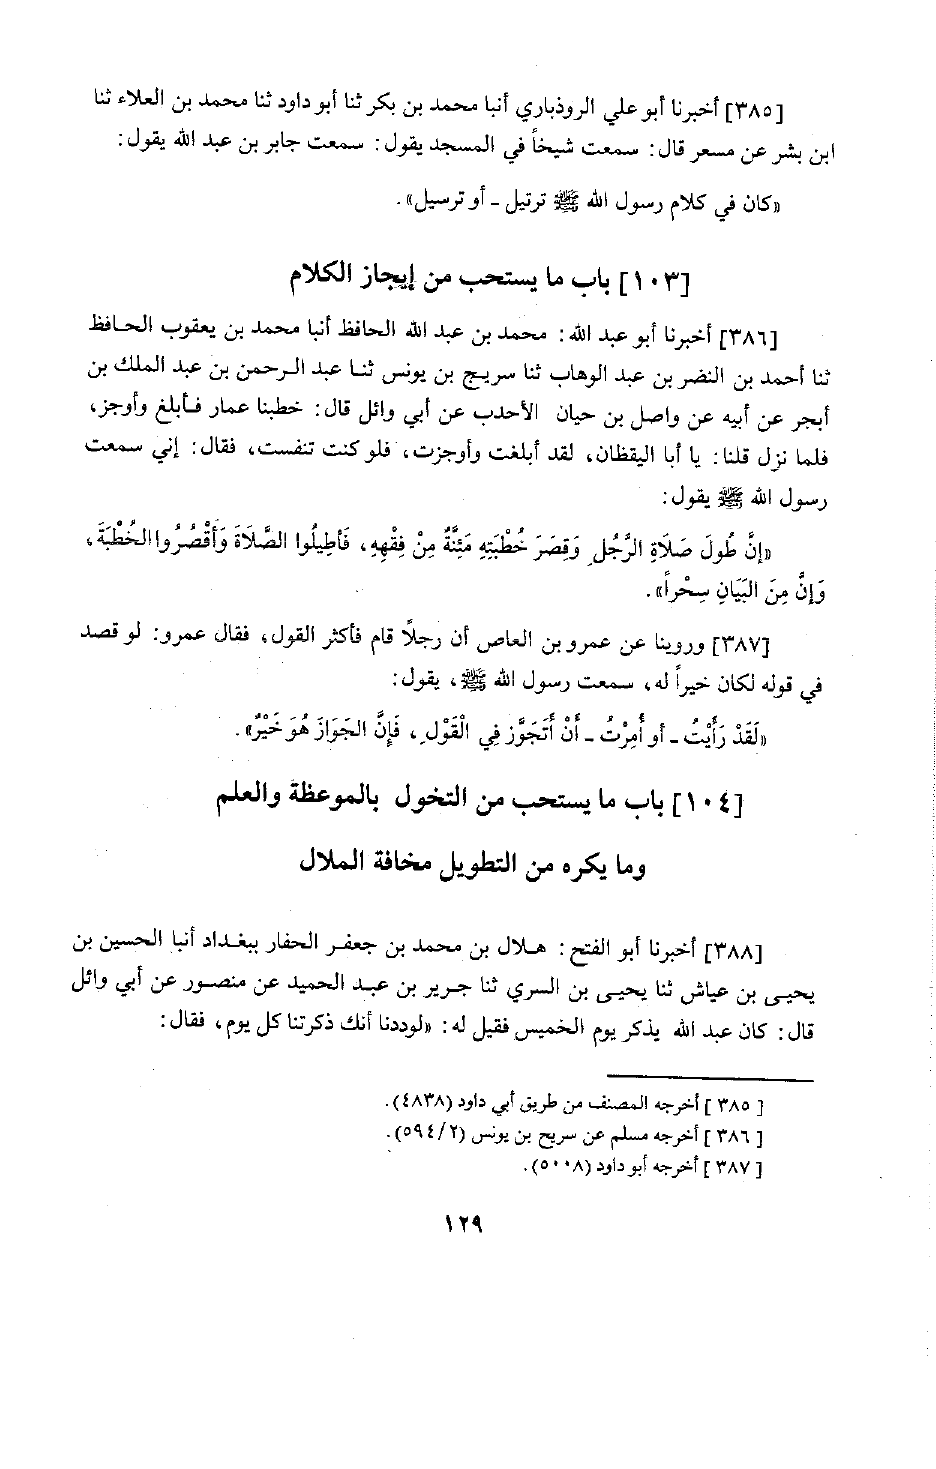 [٣٨٥] أخبرنا أبو علي الروذباري أنبا محمد بن بكر ثنا أبو داود ثنا محمد بن العلاء ثنا
ابن بشر عن مسعر قال: سمعت شيخاً في المسجد يقول: سمعت جابر بن عبد الله يقول:
«كان في كلام رسول الله ﷺ ترتيل ـ أو ترسيل».
[١٠٣] باب ما يستحب من إيجاز الكلام
[٣٨٦] أخبرنا أبو عبد الله: محمد بن عبد الله الحافظ أنبا محمد بن يعقوب الحافظ
ثنا أحمد بن النضر بن عبد الوهاب ثنا سريج بن يونس ثنا عبد الرحمن بن عبد الملك بن
أبجر عن أبيه عن واصل بن حيان الأحدب عن أبي وائل قال: خطبنا عمار فأبلغ وأوجز،
فلما نزل قلنا: يا أبا اليقظان، لقد أبلغت وأوجزت، فلو كنت تنفست، فقال: إني سمعت
رسول الله ﷺ يقول:
«إنَّ طُولَ صَلَاةِ الرَّجُلِ وَقِصَرَ خُطْبَتِهِ مَئِنَّةٌ مِنْ فِقْهِهِ، فَأطِيلُوا الصَّلَاةَ وَأَقْصُرُوا الخُطْبَةَ،
وَإنَّ مِنَ البَيَانِ سِحْراً».
[٣٨٧] وروينا عن عمرو بن العاص أن رجلًا قام فأكثر القول، فقال عمرو: لو قصد
في قوله لكان خيراً له، سمعت رسول الله ﷺ، يقول:
«لَقَدْ رَأَيْتُ ـ أو أُمِرْتُ ـ أَنْ أَتَجَوَّز فِي الْقَوْلِ، فَإِنَّ الجَوَازَ هُوَ خَيْرٌ».
[١٠٤] باب ما يستحب من التخول بالموعظة والعلم
وما يكره من التطويل مخافة الملال
[٣٨٨] أخبرنا أبو الفتح: هلال بن محمد بن جعفر الحفار ببغداد أنبا الحسين بن
يحيى بن عياش ثنا يحيى بن السري ثنا جرير بن عبد الحميد عن منصور عن أبي وائل
قال: كان عبد الله يذكر يوم الخميس فقيل له: «لوددنا أنك ذكرتنا كل يوم، فقال:
[٣٨٥] أخرجه المصنف من طريق أبي داود (٤٨٣٨).
[٣٨٦] أخرجه مسلم عن سريج بن يونس (٥٩٤/٢).
[٣٨٧] أخرجه أبو داود (٥٠٠٨).
١٢٩